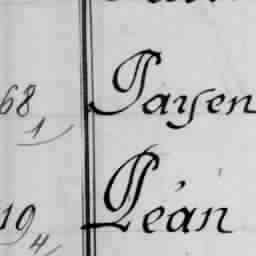 68 Payen
1
19 Péan
4